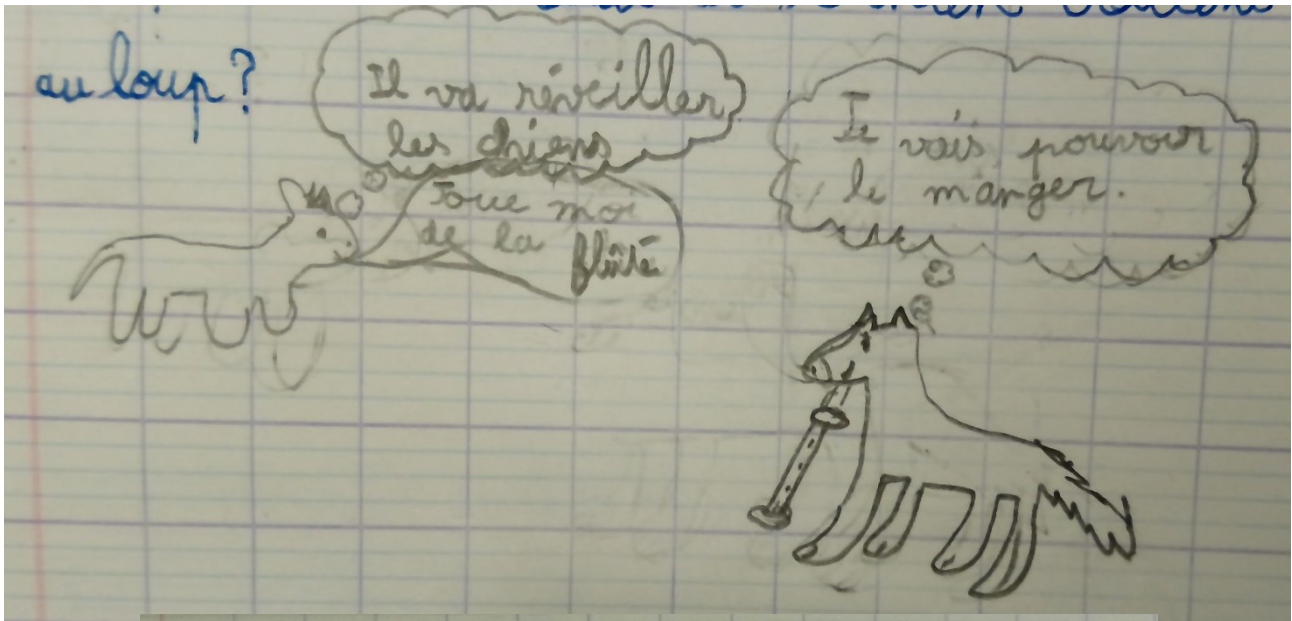 au loup?
Il va réveiller
les chiens
Joue moi
de la flûte
Je vais pouvoir
le manger.